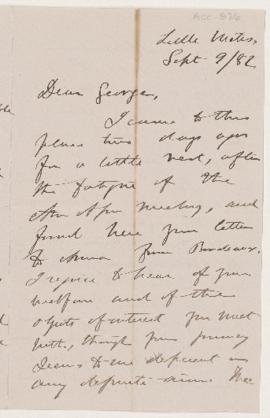 ACC-826
Little Metis,
Sept 9/82
Dear George,
I came to this
place two days ago
for a little rest, after
the fatigue of the
meeting, and
found here your letter
to Anna from Bordeaux.
I rejoice to hear of your
welfare and of the
objects of interest you meet
with, though your journey
seems to me deficient in
any definite aim. The